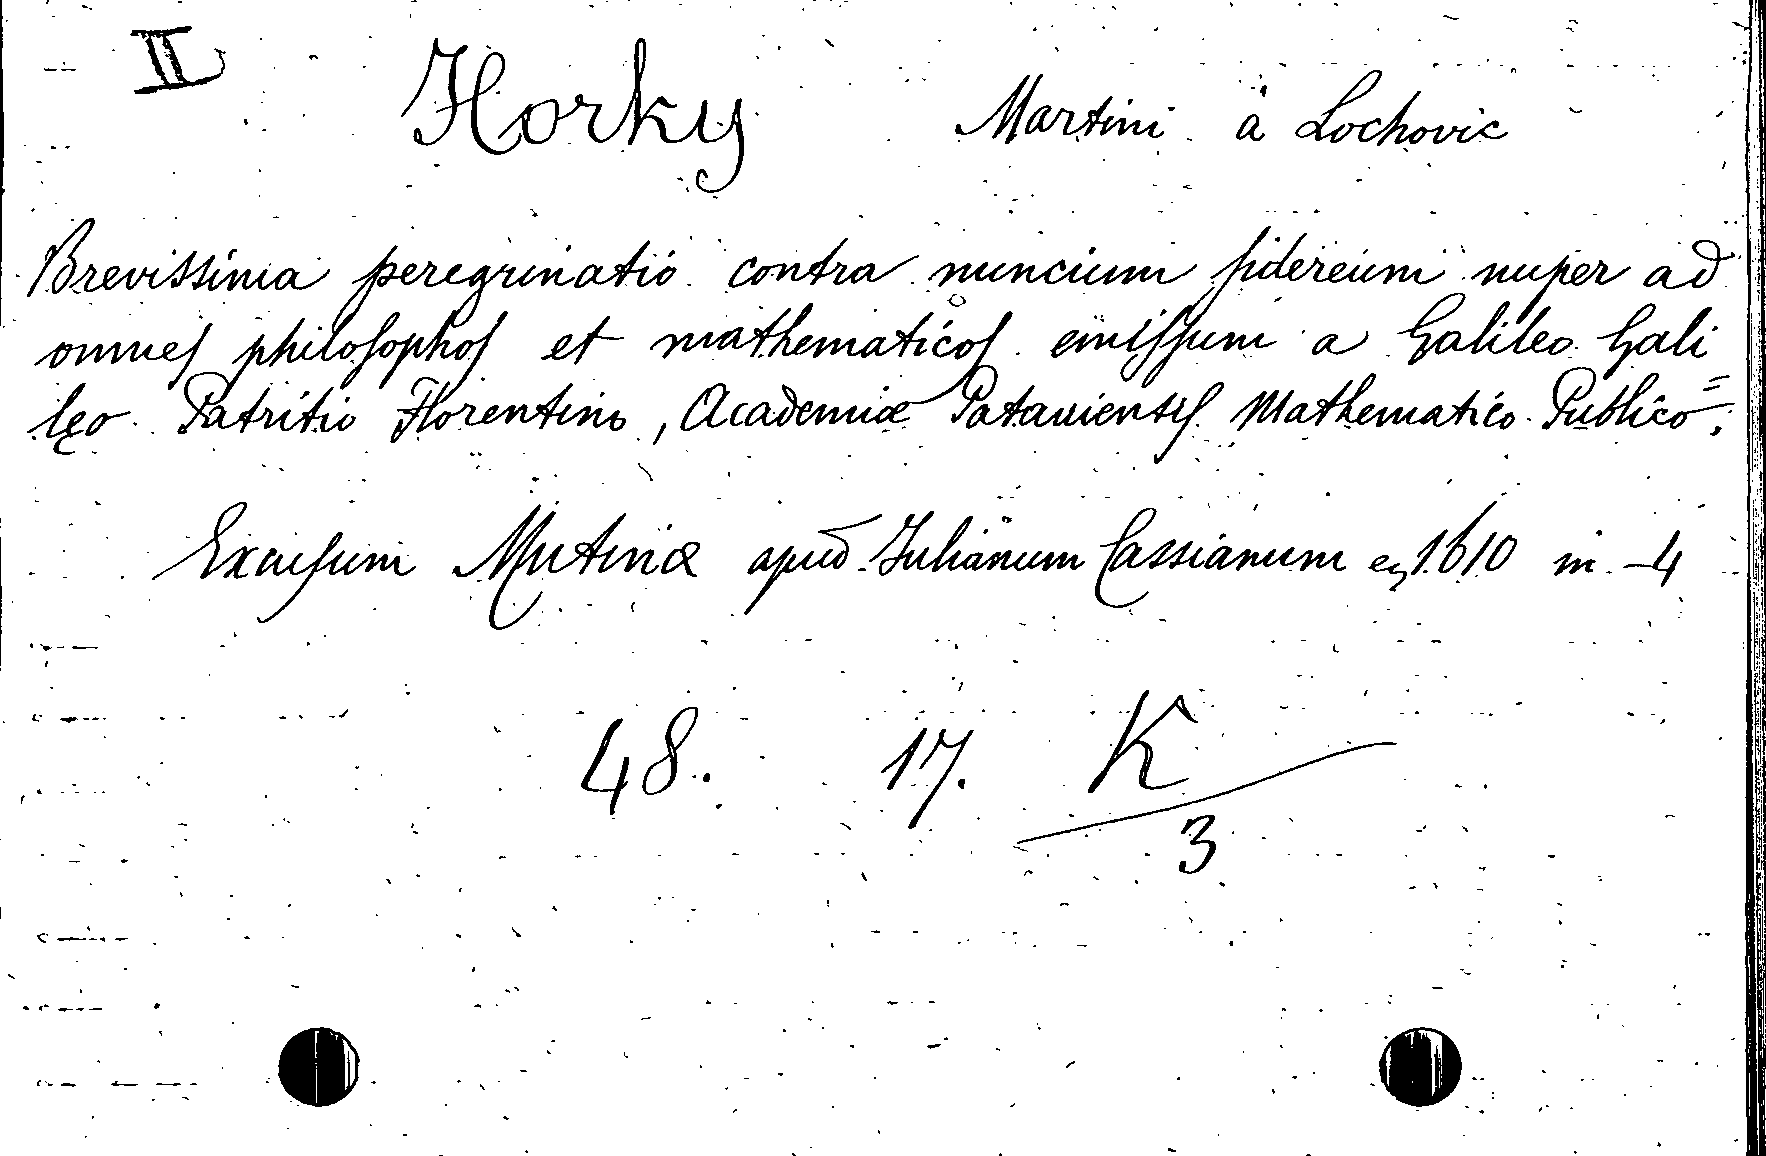 II
Horky Martini à Lochovic
Brevissima peregrinatio contra nuncium ſidereum nuper ad
omneſ philoſophoſ et mathematicoſ emiſſum a Galileo Gali=
lęo Patritio Florentino, Academiæ Patauiensiſ Mathematico Publico.
Excuſum Mutinæ apud Julianum Cassianum 1610 in -4
48. 17. K
3